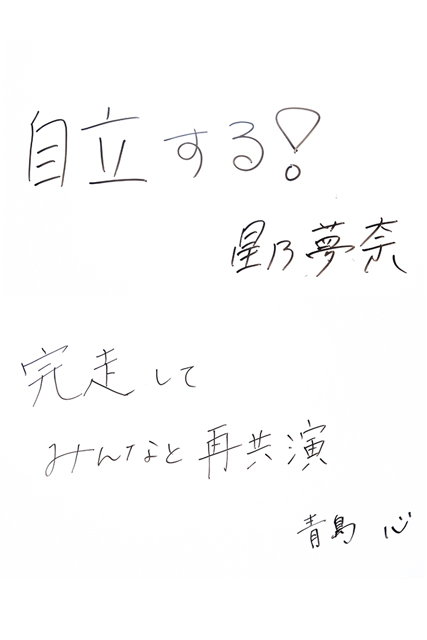 自立する！
星乃夢奈
完走して
みんなと再共演
青島 心